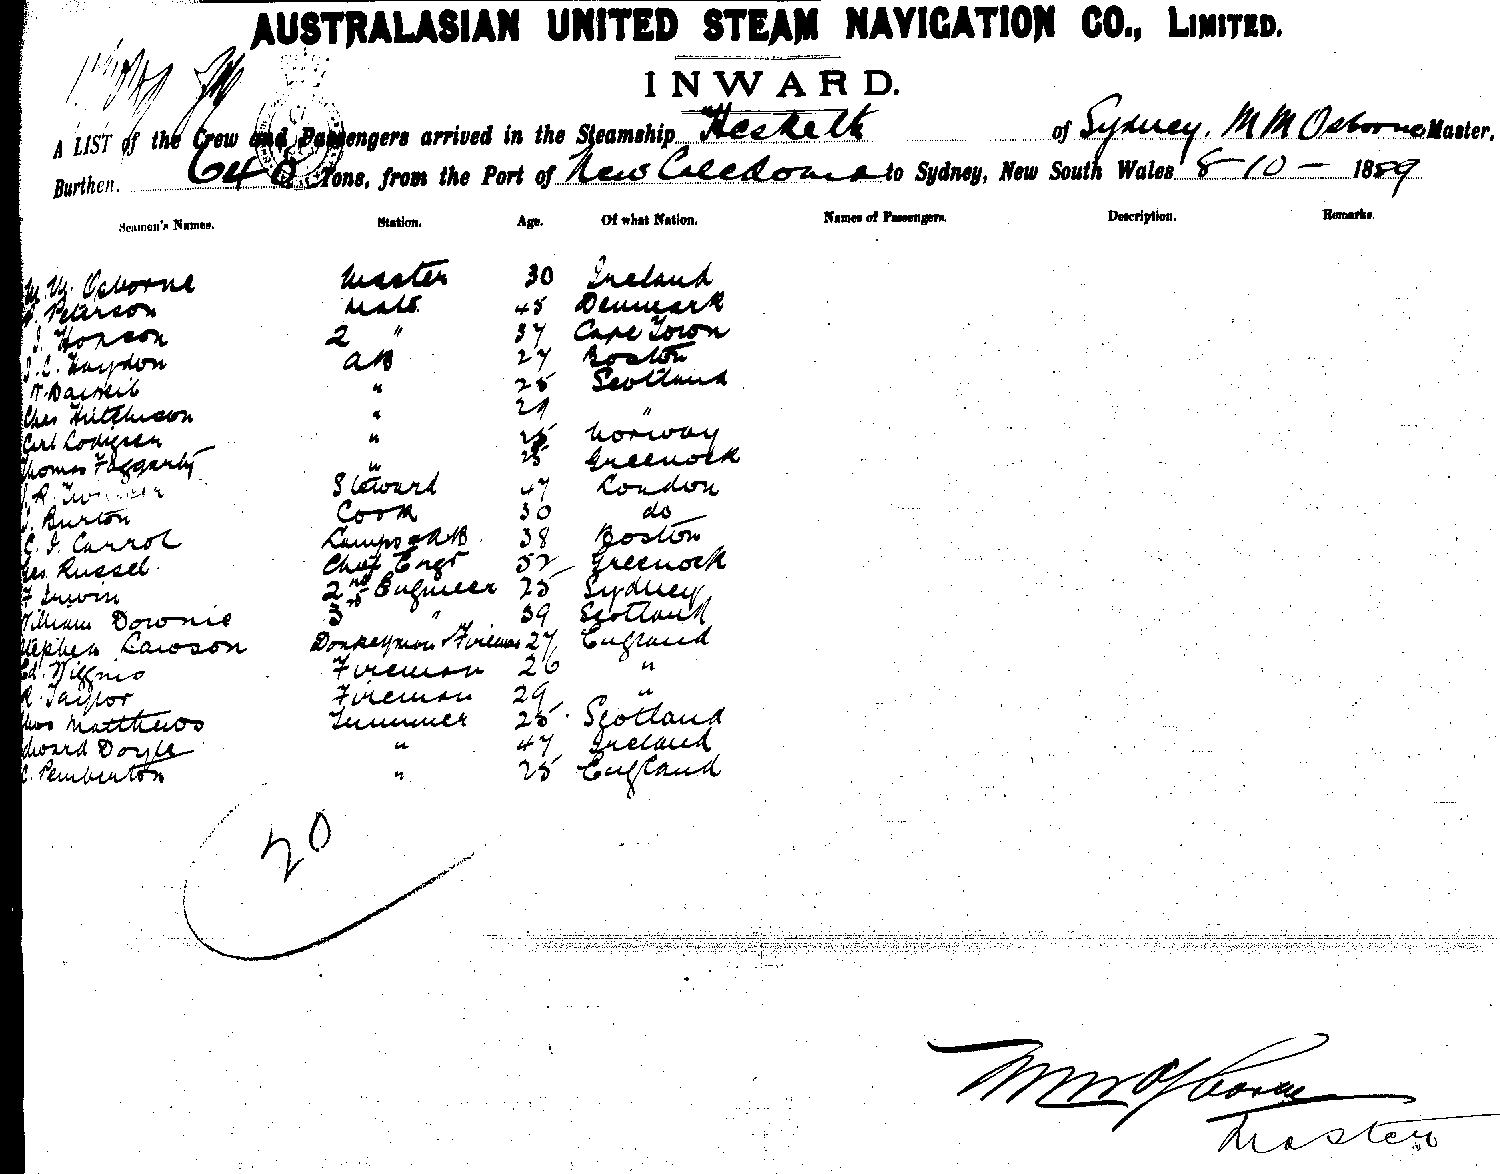 AUSTRALASIAN UNITED STEAM NAVIGATION CO., LIMITED.
INWARD.
A LIST of the Crew and Passengers arrived in the Steamship Hesketh of Sydney, M M Osborne Master,
Burthen. 640 Tons, from the Port of New Caledonia to Sydney, New South Wales 8-10- 1889
Seamen's Names. Station. Age. Of what Nation. Names of Passengers. Description. Remarks.
M. M. Osborne Master 30 Ireland
Peterson Mate 45 Denmark
J. Hopson 2 " 37 Cape Town
J. C. Haydon AB 27 Boston
" 25 Scotland
Chas Hutchison " 29 "
Carl Lodgren " 25 Norway
Thomas Faggarty " 25 Greenock
Steward 47 London
J. Burton Cook 30 do
C. J. Carrol Lamps & AB 38 Boston
Russel Chief Engr 52 Greenock
F Irwin 2nd Engineer 25 Sydney
William Downie 3rd " 39 Scotland
Stephen Lawson Donkeyman & Fireman 27 England
Ed. Wiggins Fireman 26 "
R. Taylor Fireman 29 "
Matthews Trimmer 25 Scotland
Edward Doyle " 47 Ireland
C. Pemberton " 25 England
20
M M Osborne
Master